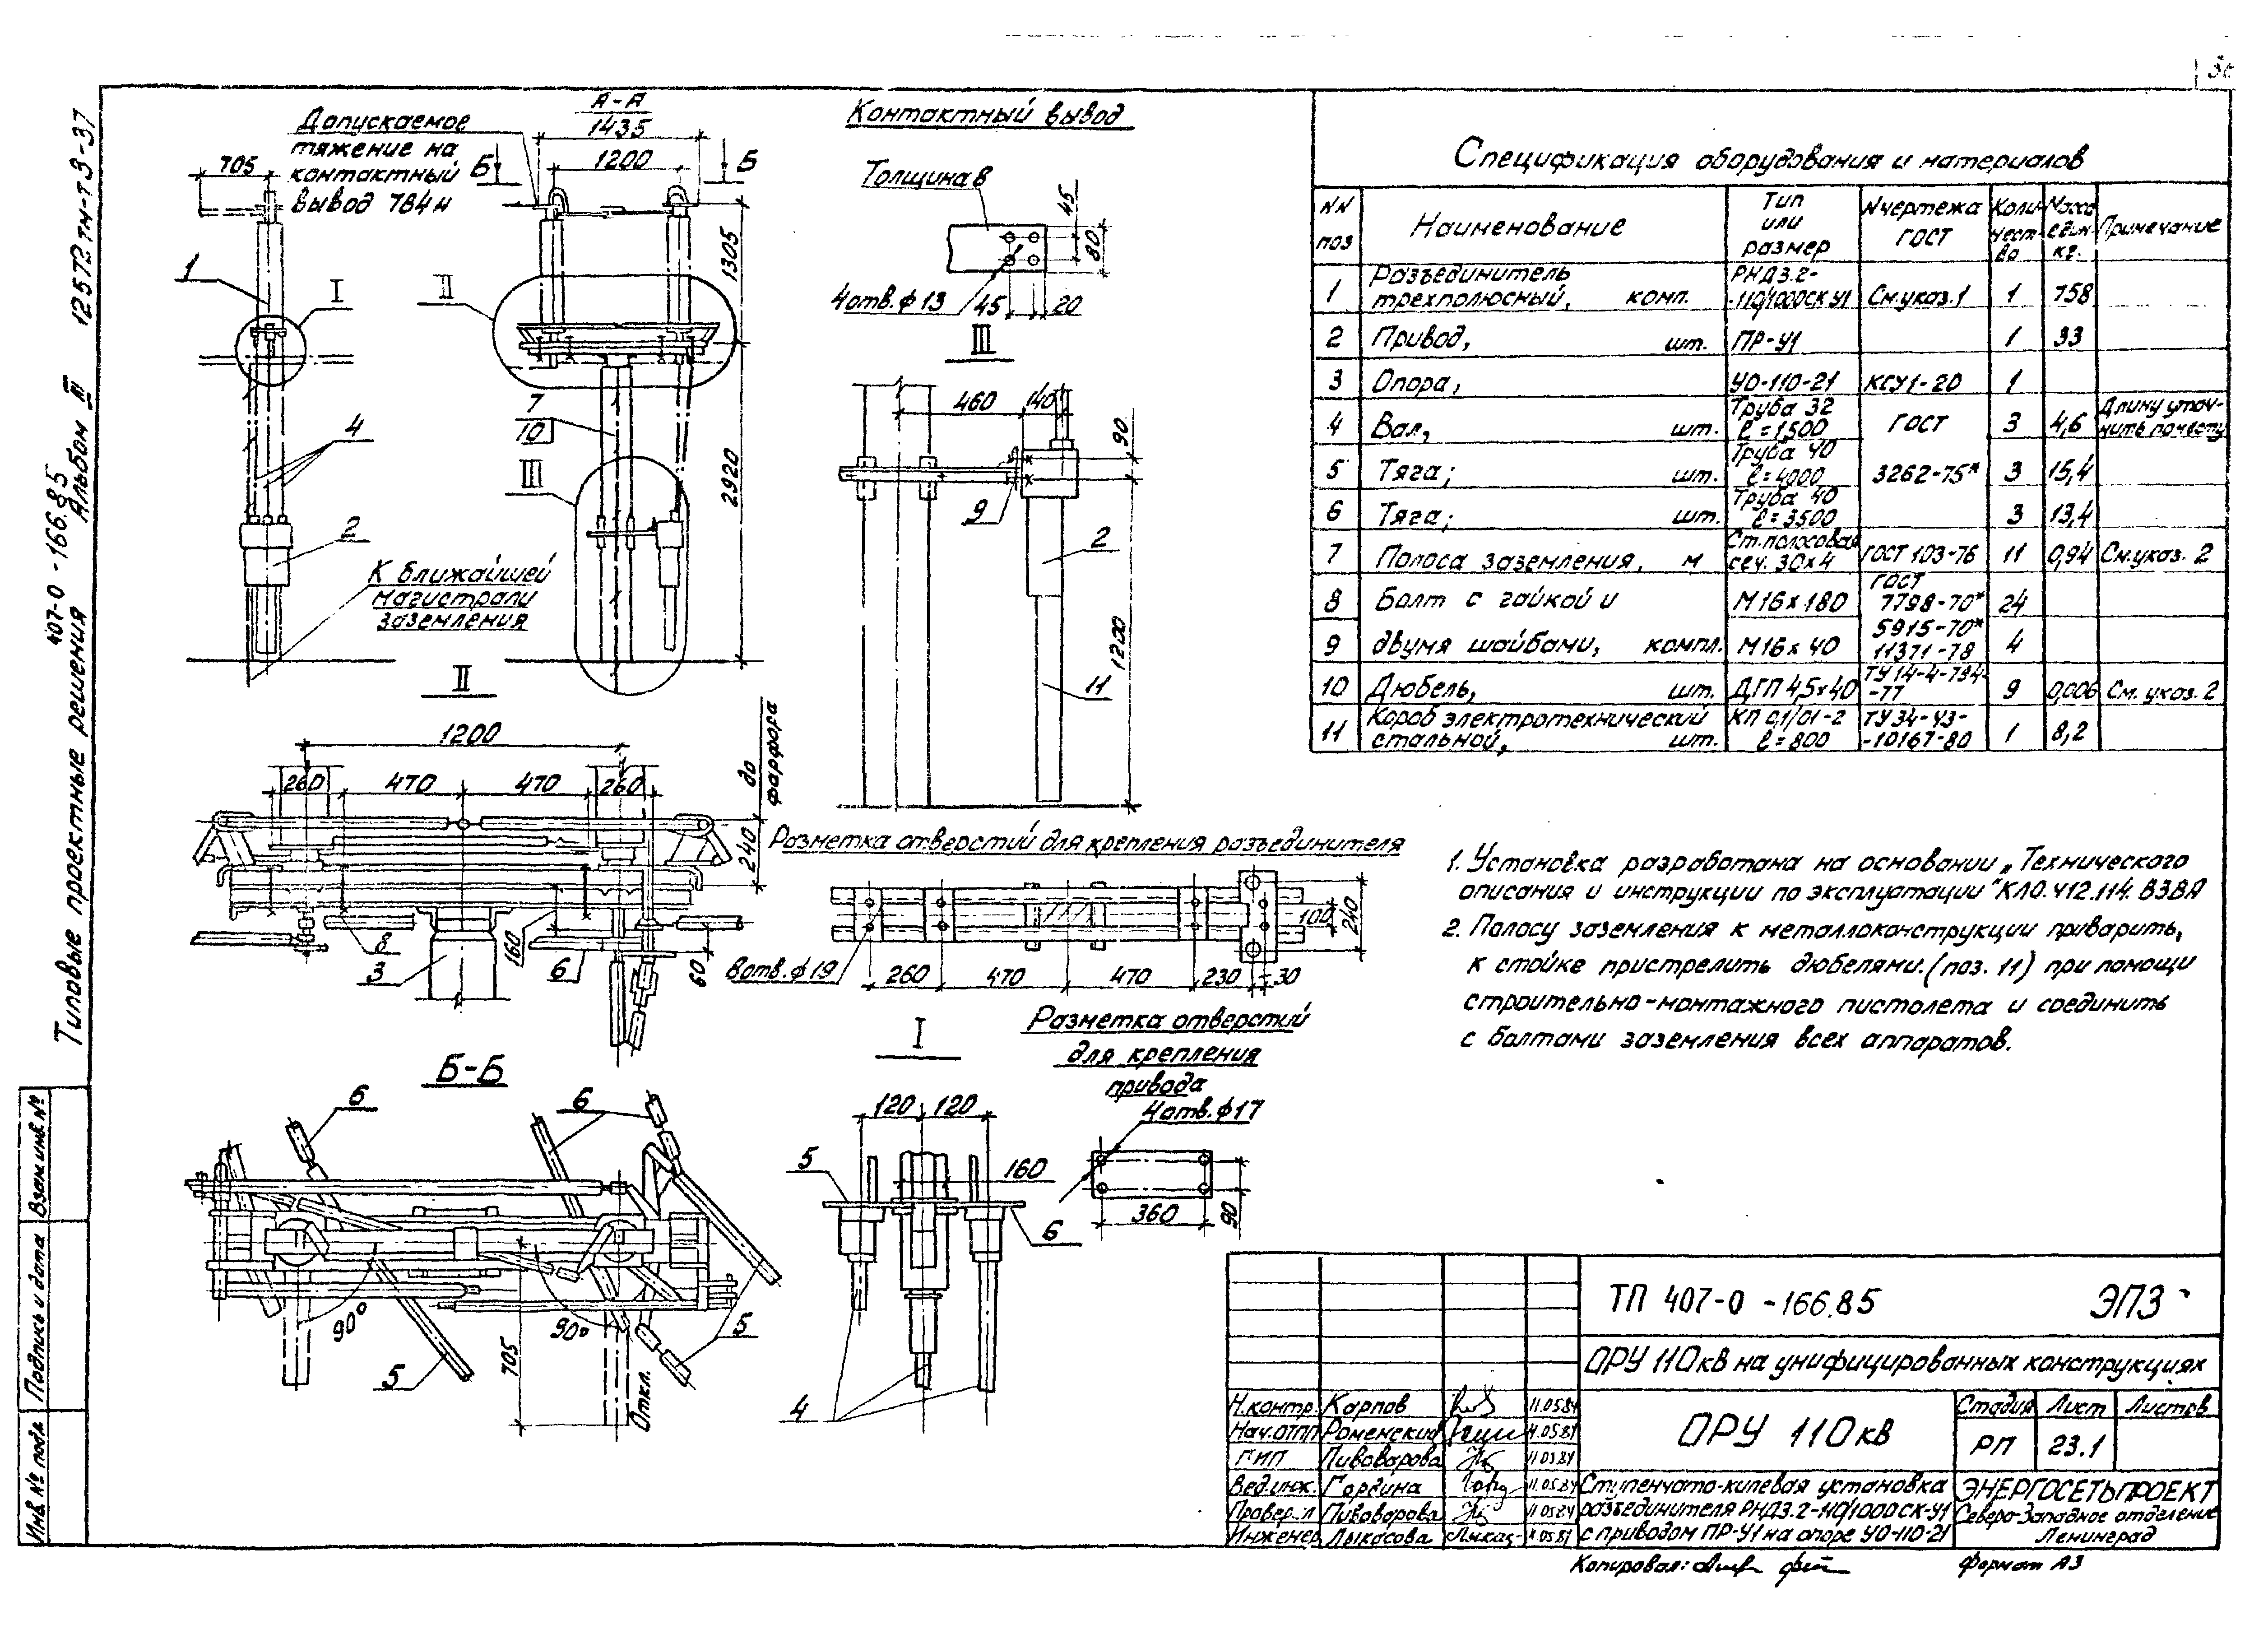 36
Типовые проектные решения 407-0-166.85 Альбом III 12572тм-т3-37
Взам.инв.№
Подпись и дата
Инв.№ подл.
А-А
Допускаемое
тяжение на
контактный
вывод 784н
1435
1200
Б
Б
705
1305
2920
1
I
II
III
4
7
10
2
К ближайшей
магистрали
заземления
Контактный вывод
Толщина 8
45
80
4 отв. ф 13
45
20
III
460
140
90
9
2
1200
11
II
1200
260
470
470
260
до
фарфора
240
8
3
160
6
60
Разметка отверстий для крепления разъединителя
100
240
8 отв. ф 19
260
470
470
230
30
Б-Б
6
6
90°
90°
705
5
5
Откл.
I
120
120
5
160
6
4
Разметка отверстий
для крепления
привода
4 отв. ф 17
360
90
Спецификация оборудования и материалов
NN поз
Наименование
Тип или размер
N чертежа ГОСТ
Коли-чест-во
Масса един. кг.
Примечание
1 Разъединитель трехполюсный, компл. РНДЗ.2-110/1000СК У1 См.указ.1 1 758
2 Привод, шт. ПР-У1 1 33
3 Опора, УО-110-21 КСУ1-20 1
4 Вал, шт. Труба 32 ℓ=1500 ГОСТ 3 4,6 Длину уточ-нить по месту
5 Тяга; шт. Труба 40 ℓ=4000 3262-75* 3 15,4
6 Тяга; шт. Труба 40 ℓ=3500 3 13,4
7 Полоса заземления, м Ст.полосовая сеч. 30х4 ГОСТ 103-76 11 0,94 См.указ. 2
8 Болт с гайкой и М16х180 ГОСТ 7798-70* 24
9 двумя шайбами, компл. М16х40 5915-70* 11371-78 4
10 Дюбель, шт. ДГП 4,5х40 ТУ14-4-794-77 9 0,006 См. указ. 2
11 Короб электротехнический стальной, шт. КП 0,1/01-2 ℓ=800 ТУ34-43-10167-80 1 8,2
1. Установка разработана на основании „Технического
описания и инструкции по эксплуатации" КЛ0.412.114. ВЗВЯ
2. Полосу заземления к металлоконструкции приварить,
к стойке пристрелить дюбелями.(поз. 11) при помощи
строительно-монтажного пистолета и соединить
с болтами заземления всех аппаратов.
ТП 407-0-166.85 ЭПЗ
ОРУ 110кВ на унифицированных конструкциях
ОРУ 110кв
Стадия Лист Листов
РП 23.1
Н.контр. Карпов 11.05.84
Нач.ОТП Роменский 11.05.84
ГИП Пивоварова 11.05.84
Вед.инж. Гордина 11.05.84
Провер.л Пивоварова 11.05.84
Инженер Лыкасова 11.05.84
Ступенчато-килевая установка
разъединителя РНДЗ.2-110/1000СК-У1
с приводом ПР-У1 на опоре УО-110-21
ЭНЕРГОСЕТЬПРОЕКТ
Северо-Западное отделение
Ленинград
Копировал:
Формат А3